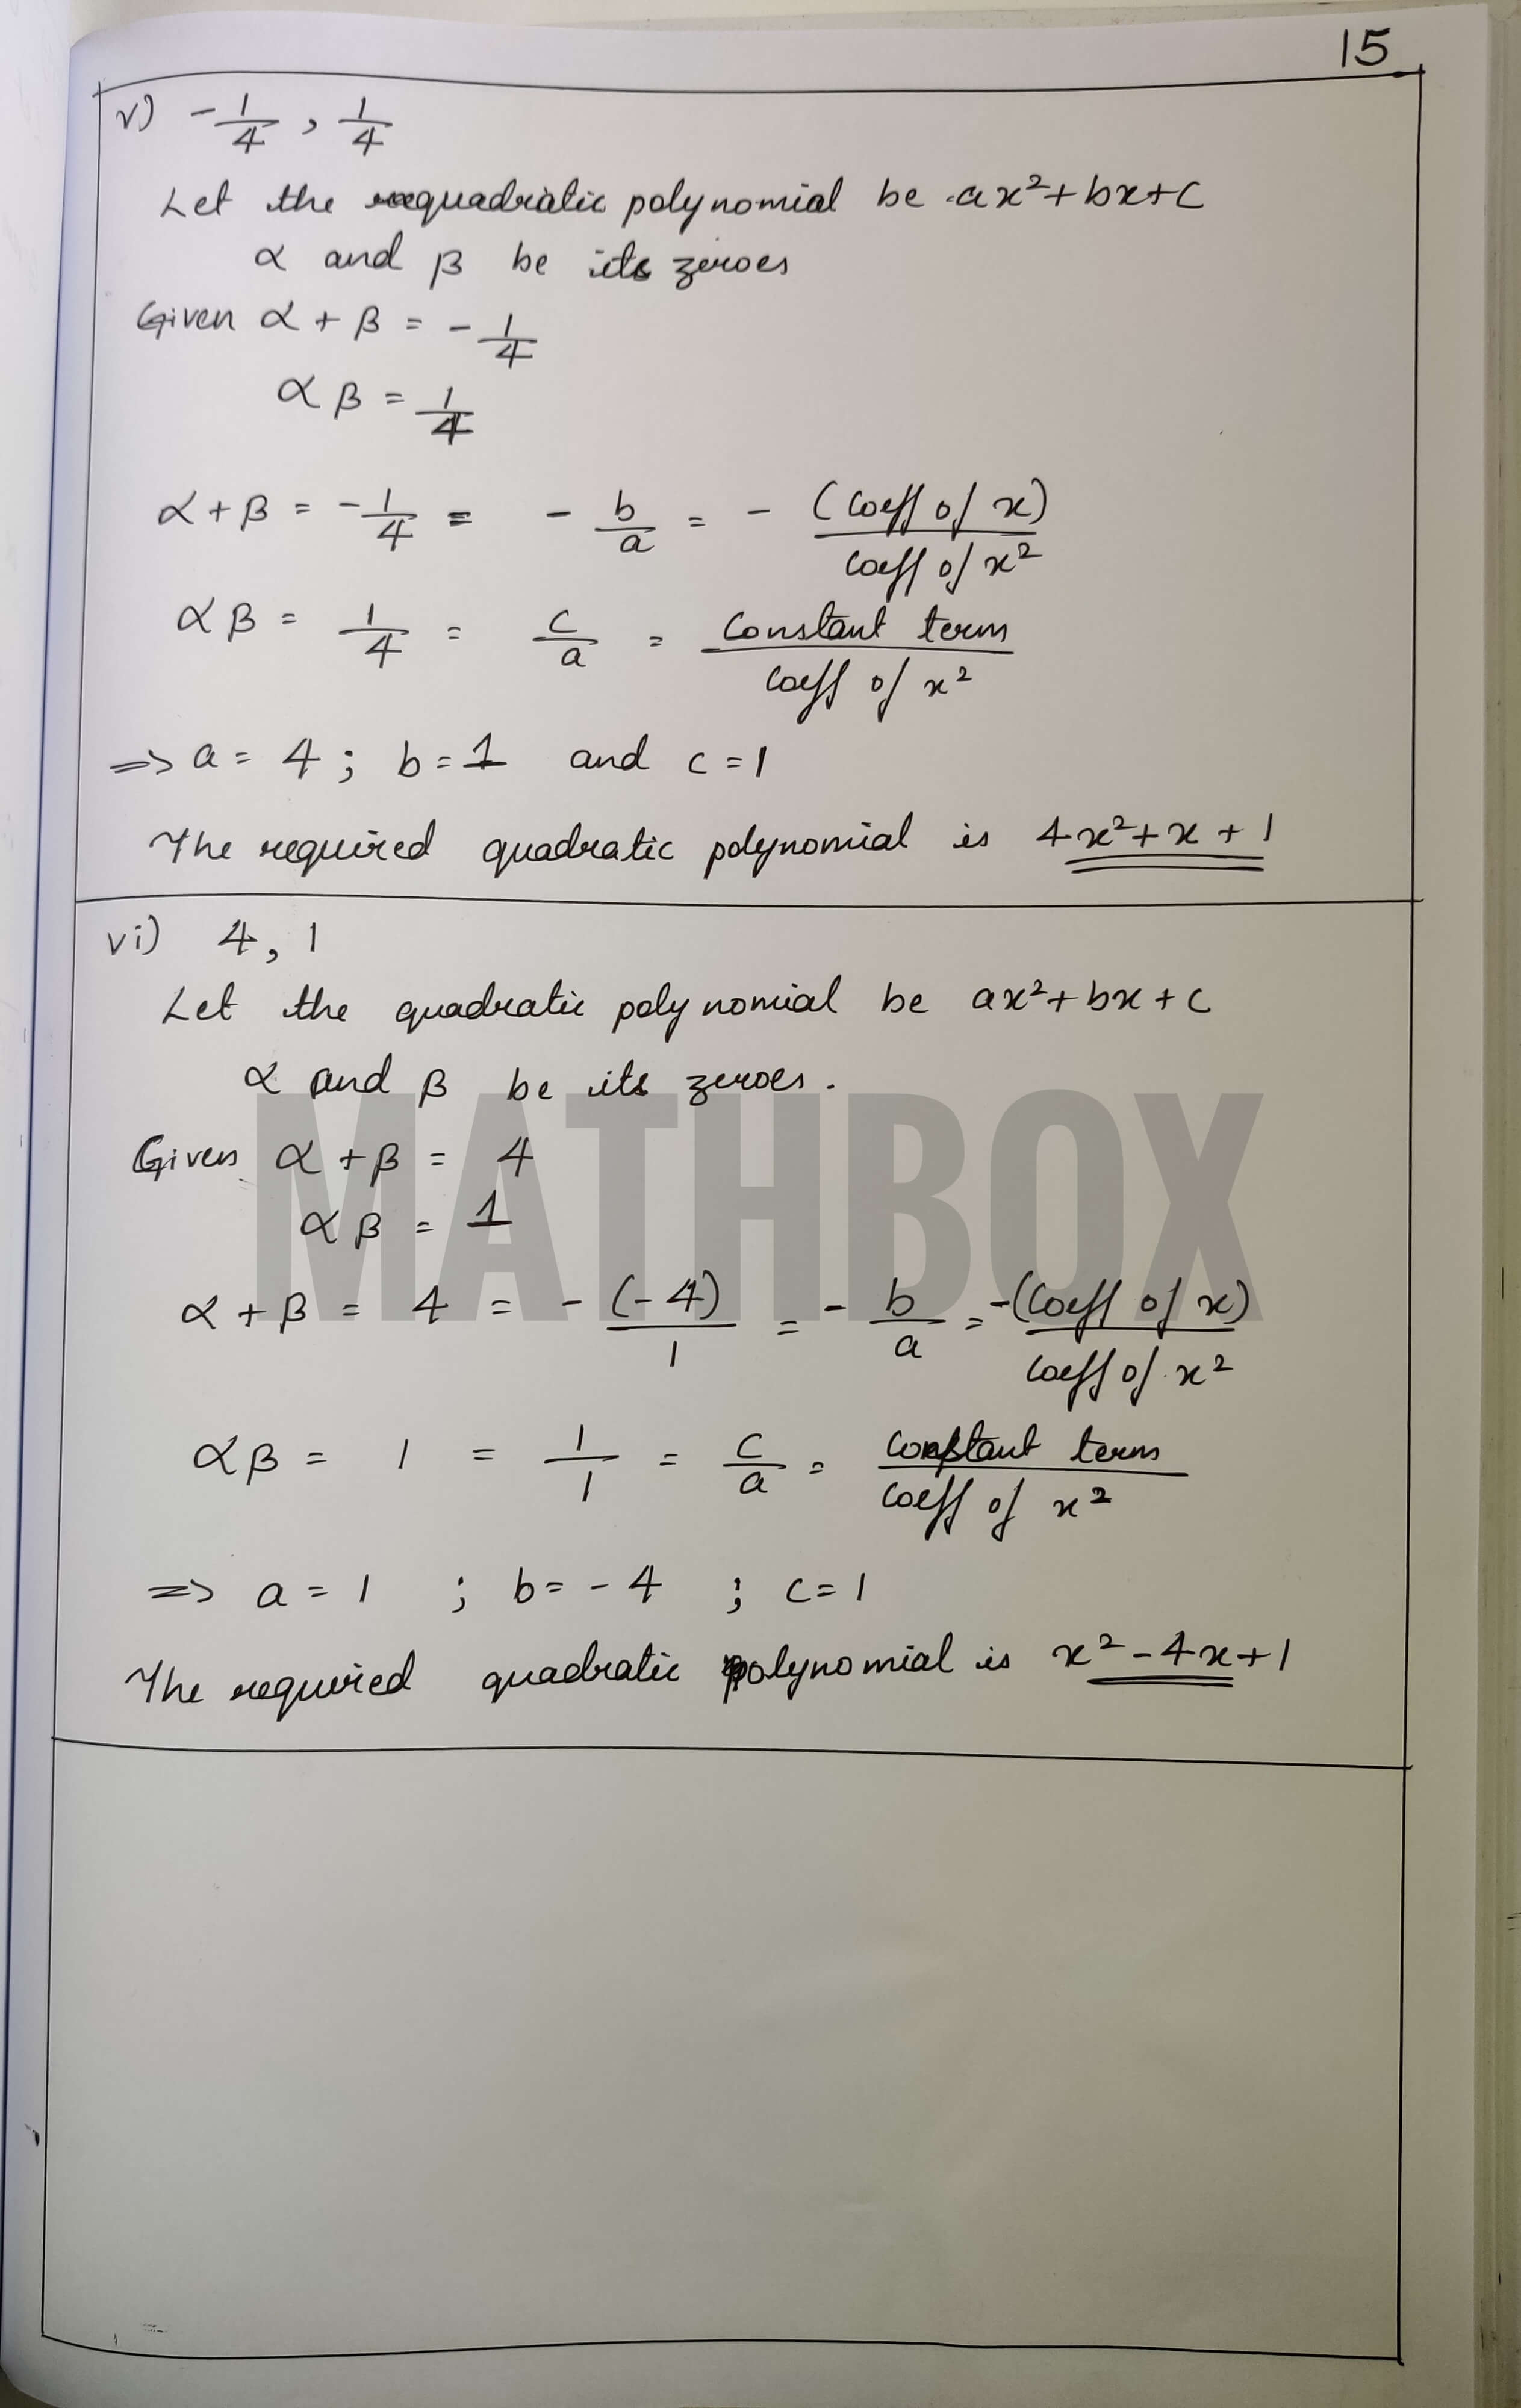 15
v) -1/4 , 1/4
Let the quadratic polynomial be ax²+bx+c
α and β be its zeroes
Given α + β = -1/4
αβ = 1/4
α+β = -1/4 = -b/a = -(coeff of x)/coeff of x²
αβ = 1/4 = c/a = constant term/coeff of x²
=> a = 4 ; b = 1 and c = 1
The required quadratic polynomial is 4x²+x+1
vi) 4, 1
Let the quadratic polynomial be ax²+bx+c
α and β be its zeroes.
Given α + β = 4
αβ = 1
α + β = 4 = -(-4)/1 = -b/a = -(coeff of x)/coeff of x²
αβ = 1 = 1/1 = c/a = constant term/coeff of x²
=> a = 1 ; b = -4 ; c = 1
The required quadratic polynomial is x²-4x+1
MATHBOX